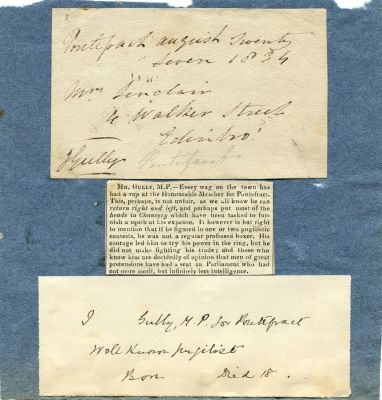 Pontefract august twenty
seven 1834
Mrs Sinclair
Walker Street
Edinbro'
JGully Pontefract
MR. GULLY, M.P.—Every wag on the town has
had a rap at the Honourable Member for Pontefract.
This, perhaps, is not unfair, as we all know he can
return right and left, and perhaps put most of the
heads in Chancery which have been tasked to fur-
nish a squib at his expense. It however is but right
to mention that if he figured in one or two pugilistic
contests, he was not a regular professed boxer. His
courage led him to try his power in the ring, but he
did not make fighting his trade; and those who
know him are decidedly of opinion that men of great
pretensions have had a seat in Parliament who had
not more merit, but infinitely less intelligence.
J Gully, M.P. for Pontefract
Well Known pugilist
Born Died 18 .